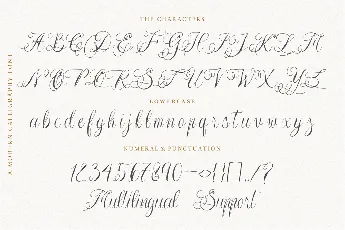 THE CHARACTERS
A B C D E F G H I J K L M
N O P Q R S T U V W X Y Z
LOWERCASE
a b c d e f g h i j k l m n o p q r s t u v w x y z
NUMERAL & PUNCTUATION
Multilingual Support
A MODERN CALLIGRAPHY FONT